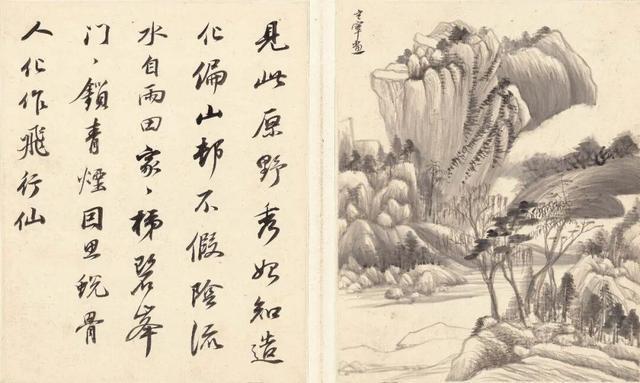 玄宰畫
見此原野秀始知造
化偏山邨不假陰流
水自雨田家〻梯碧峯
門〻鎖青煙因思蛻骨
人化作飛行仙